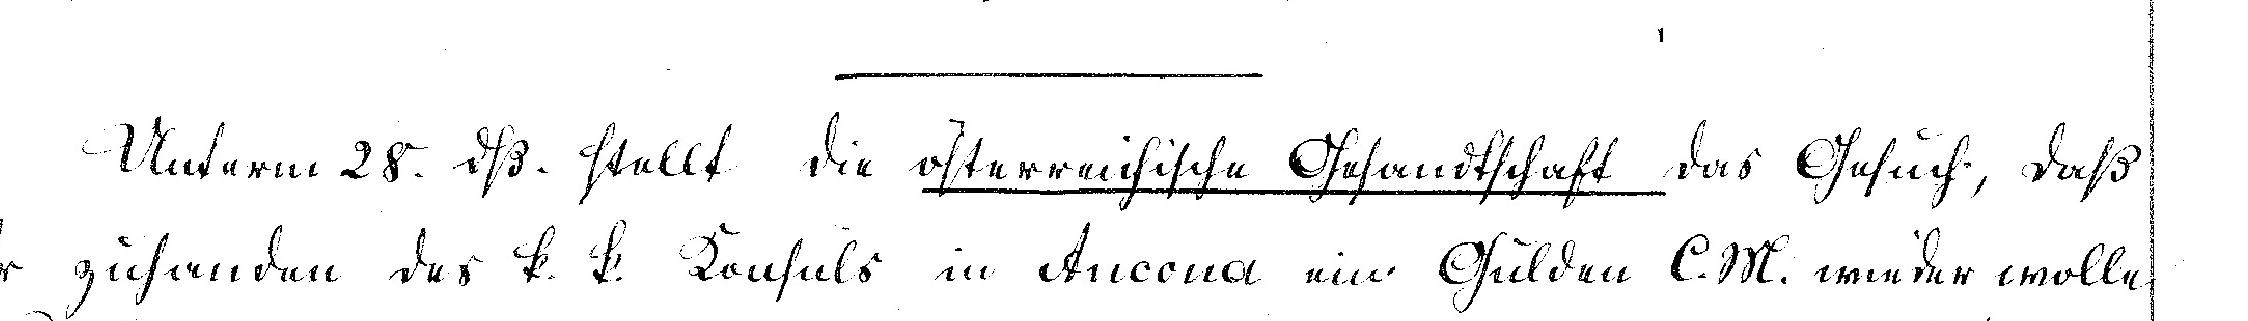 Unterm 28. dß. stellt die österreichische Gesandtschaft das Gesuch, daß
zuhanden des k. k. Konsuls in Ancona ein Gulden C. M. wieder wolle